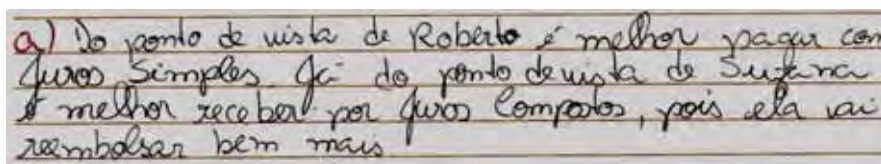 a) Do ponto de vista de Roberto é melhor pagar com
Juros Simples Já do ponto de vista de Suzana
é melhor receber por Juros Compostos, pois ela vai
reembolsar bem mais